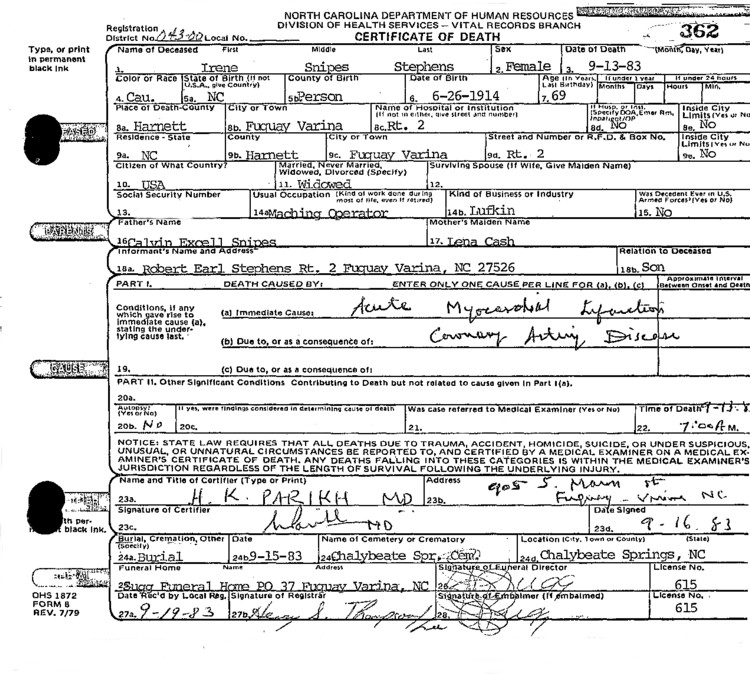 NORTH CAROLINA DEPARTMENT OF HUMAN RESOURCES
Registration DIVISION OF HEALTH SERVICES – VITAL RECORDS BRANCH
District No. 043-00 Local No. CERTIFICATE OF DEATH 362
Type, or print in permanent black ink
Name of Deceased First Middle Last Sex Date of Death (Month, Day, Year)
1. Irene Snipes Stephens 2. Female 3. 9-13-83
Color or Race State of Birth (If not U.S.A., give Country) County of Birth Date of Birth Age (In Years, Last Birthday) If under 1 year Months Days If under 24 hours Hours Min.
4. Cau. 5a. NC 5b. Person 6. 6-26-1914 7. 69
Place of Death-County City or Town Name of Hospital or Institution (If not in either, give street and number) If Hosp. or Inst. (Specify DOA, Emer Rm, Inpatient/OP Inside City Limits (Yes or No
8a. Harnett 8b. Fuquay Varina 8c. Rt. 2 8d. No 8e. No
Residence - State County City or Town Street and Number or R.F.D. & Box No. Inside City Limits (Yes or No
9a. NC 9b. Harnett 9c. Fuquay Varina 9d. Rt. 2 9e. No
Citizen of What Country? Married, Never Married, Widowed, Divorced (Specify) Surviving Spouse (If Wife, Give Maiden Name)
10. USA 11. Widowed 12.
Social Security Number Usual Occupation (Kind of work done during most of life, even if retired) Kind of Business or Industry Was Decedent Ever in U.S. Armed Forces? (Yes or No)
13. 14a Maching Operator 14b. Lufkin 15. No
PARENTS
Father's Name Mother's Maiden Name
16 Calvin Excell Snipes 17. Lena Cash
Informant's Name and Address Relation to Deceased
18a. Robert Earl Stephens Rt. 2 Fuquay Varina, NC 27526 18b. Son
PART I. DEATH CAUSED BY: ENTER ONLY ONE CAUSE PER LINE FOR (a), (b), (c) Approximate Interval Between Onset and Death
Conditions, if any which gave rise to immediate cause (a), stating the underlying cause last.
(a) Immediate Cause: Acute Myocardial Infarction
(b) Due to, or as a consequence of: Coronary Artery Disease
CAUSE
19. (c) Due to, or as a consequence of:
PART II. Other Significant Conditions Contributing to Death but not related to cause given in Part I(a).
20a.
Autopsy? (Yes or No) If yes, were findings considered in determining cause of death Was case referred to Medical Examiner (Yes or No) Time of Death 9-13-8
20b. No 20c. 21. 22. 7:00 A M.
NOTICE: STATE LAW REQUIRES THAT ALL DEATHS DUE TO TRAUMA, ACCIDENT, HOMICIDE, SUICIDE, OR UNDER SUSPICIOUS,
UNUSUAL, OR UNNATURAL CIRCUMSTANCES BE REPORTED TO, AND CERTIFIED BY A MEDICAL EXAMINER ON A MEDICAL EX-
AMINER'S CERTIFICATE OF DEATH. ANY DEATHS FALLING INTO THESE CATEGORIES IS WITHIN THE MEDICAL EXAMINER'S
JURISDICTION REGARDLESS OF THE LENGTH OF SURVIVAL FOLLOWING THE UNDERLYING INJURY.
Name and Title of Certifier (Type or Print) Address 905 S. Main St
23a. H. K. PARIKH MD 23b. Fuquay - Varina NC.
Signature of Certifier Date Signed
23c. MD 23d. 9-16-83
black ink.
Burial, Cremation, Other (Specify) Date Name of Cemetery or Crematory Location (City, Town or County) (State)
24a. Burial 24b 9-15-83 24c Chalybeate Spr. Cem. 24d. Chalybeate Springs, NC
Funeral Home Name Address Signature of Funeral Director License No.
25 Sugg Funeral Home PO 37 Fuquay Varina, NC 26. 615
Date Rec'd by Local Reg. Signature of Registrar Signature of Embalmer (If embalmed) License No.
27a. 9-19-83 27b. 28. 615
OHS 1872
FORM 8
REV. 7/79